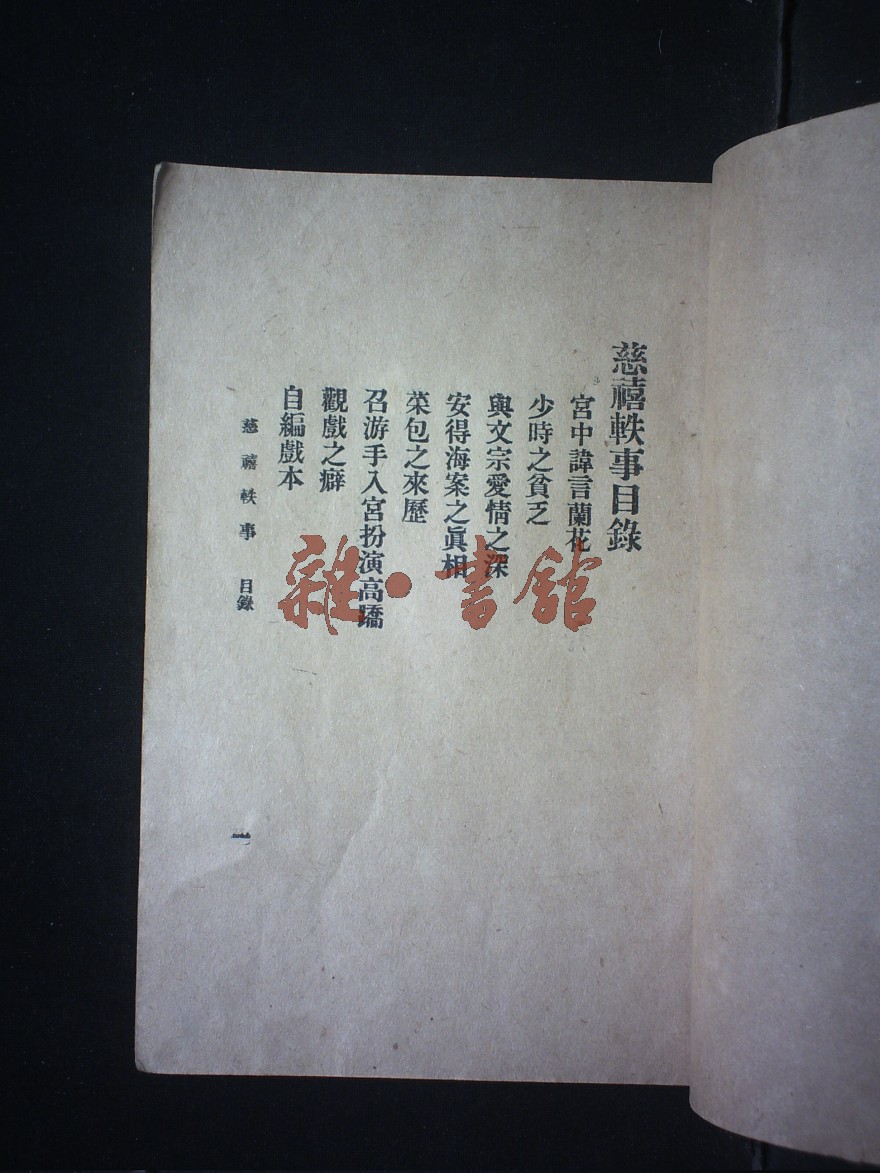 慈禧軼事目錄
宮中諱言蘭花
少時之貧乏
與文宗愛情之深
安得海案之眞相
菜包之來歷
召游手入宮扮演高蹻
觀戲之癖
自編戲本
慈禧軼事 目錄
一
雜·書館